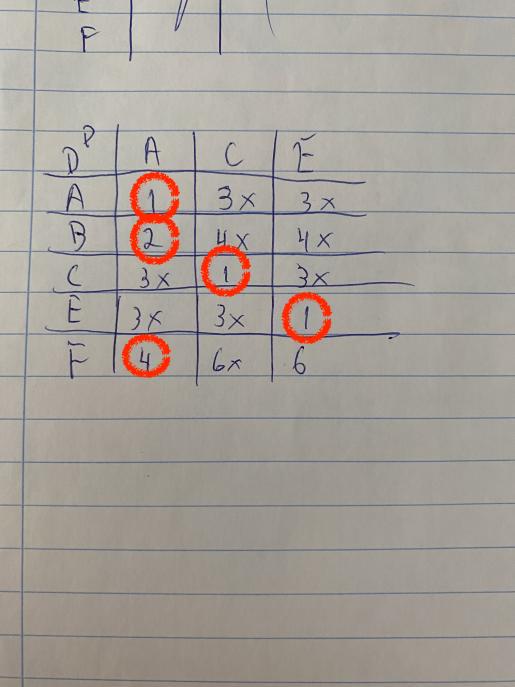 E
F
D^P A C E
A 1 3x 3x
B 2 4x 4x
C 3x 1 3x
E 3x 3x 1
F 4 6x 6